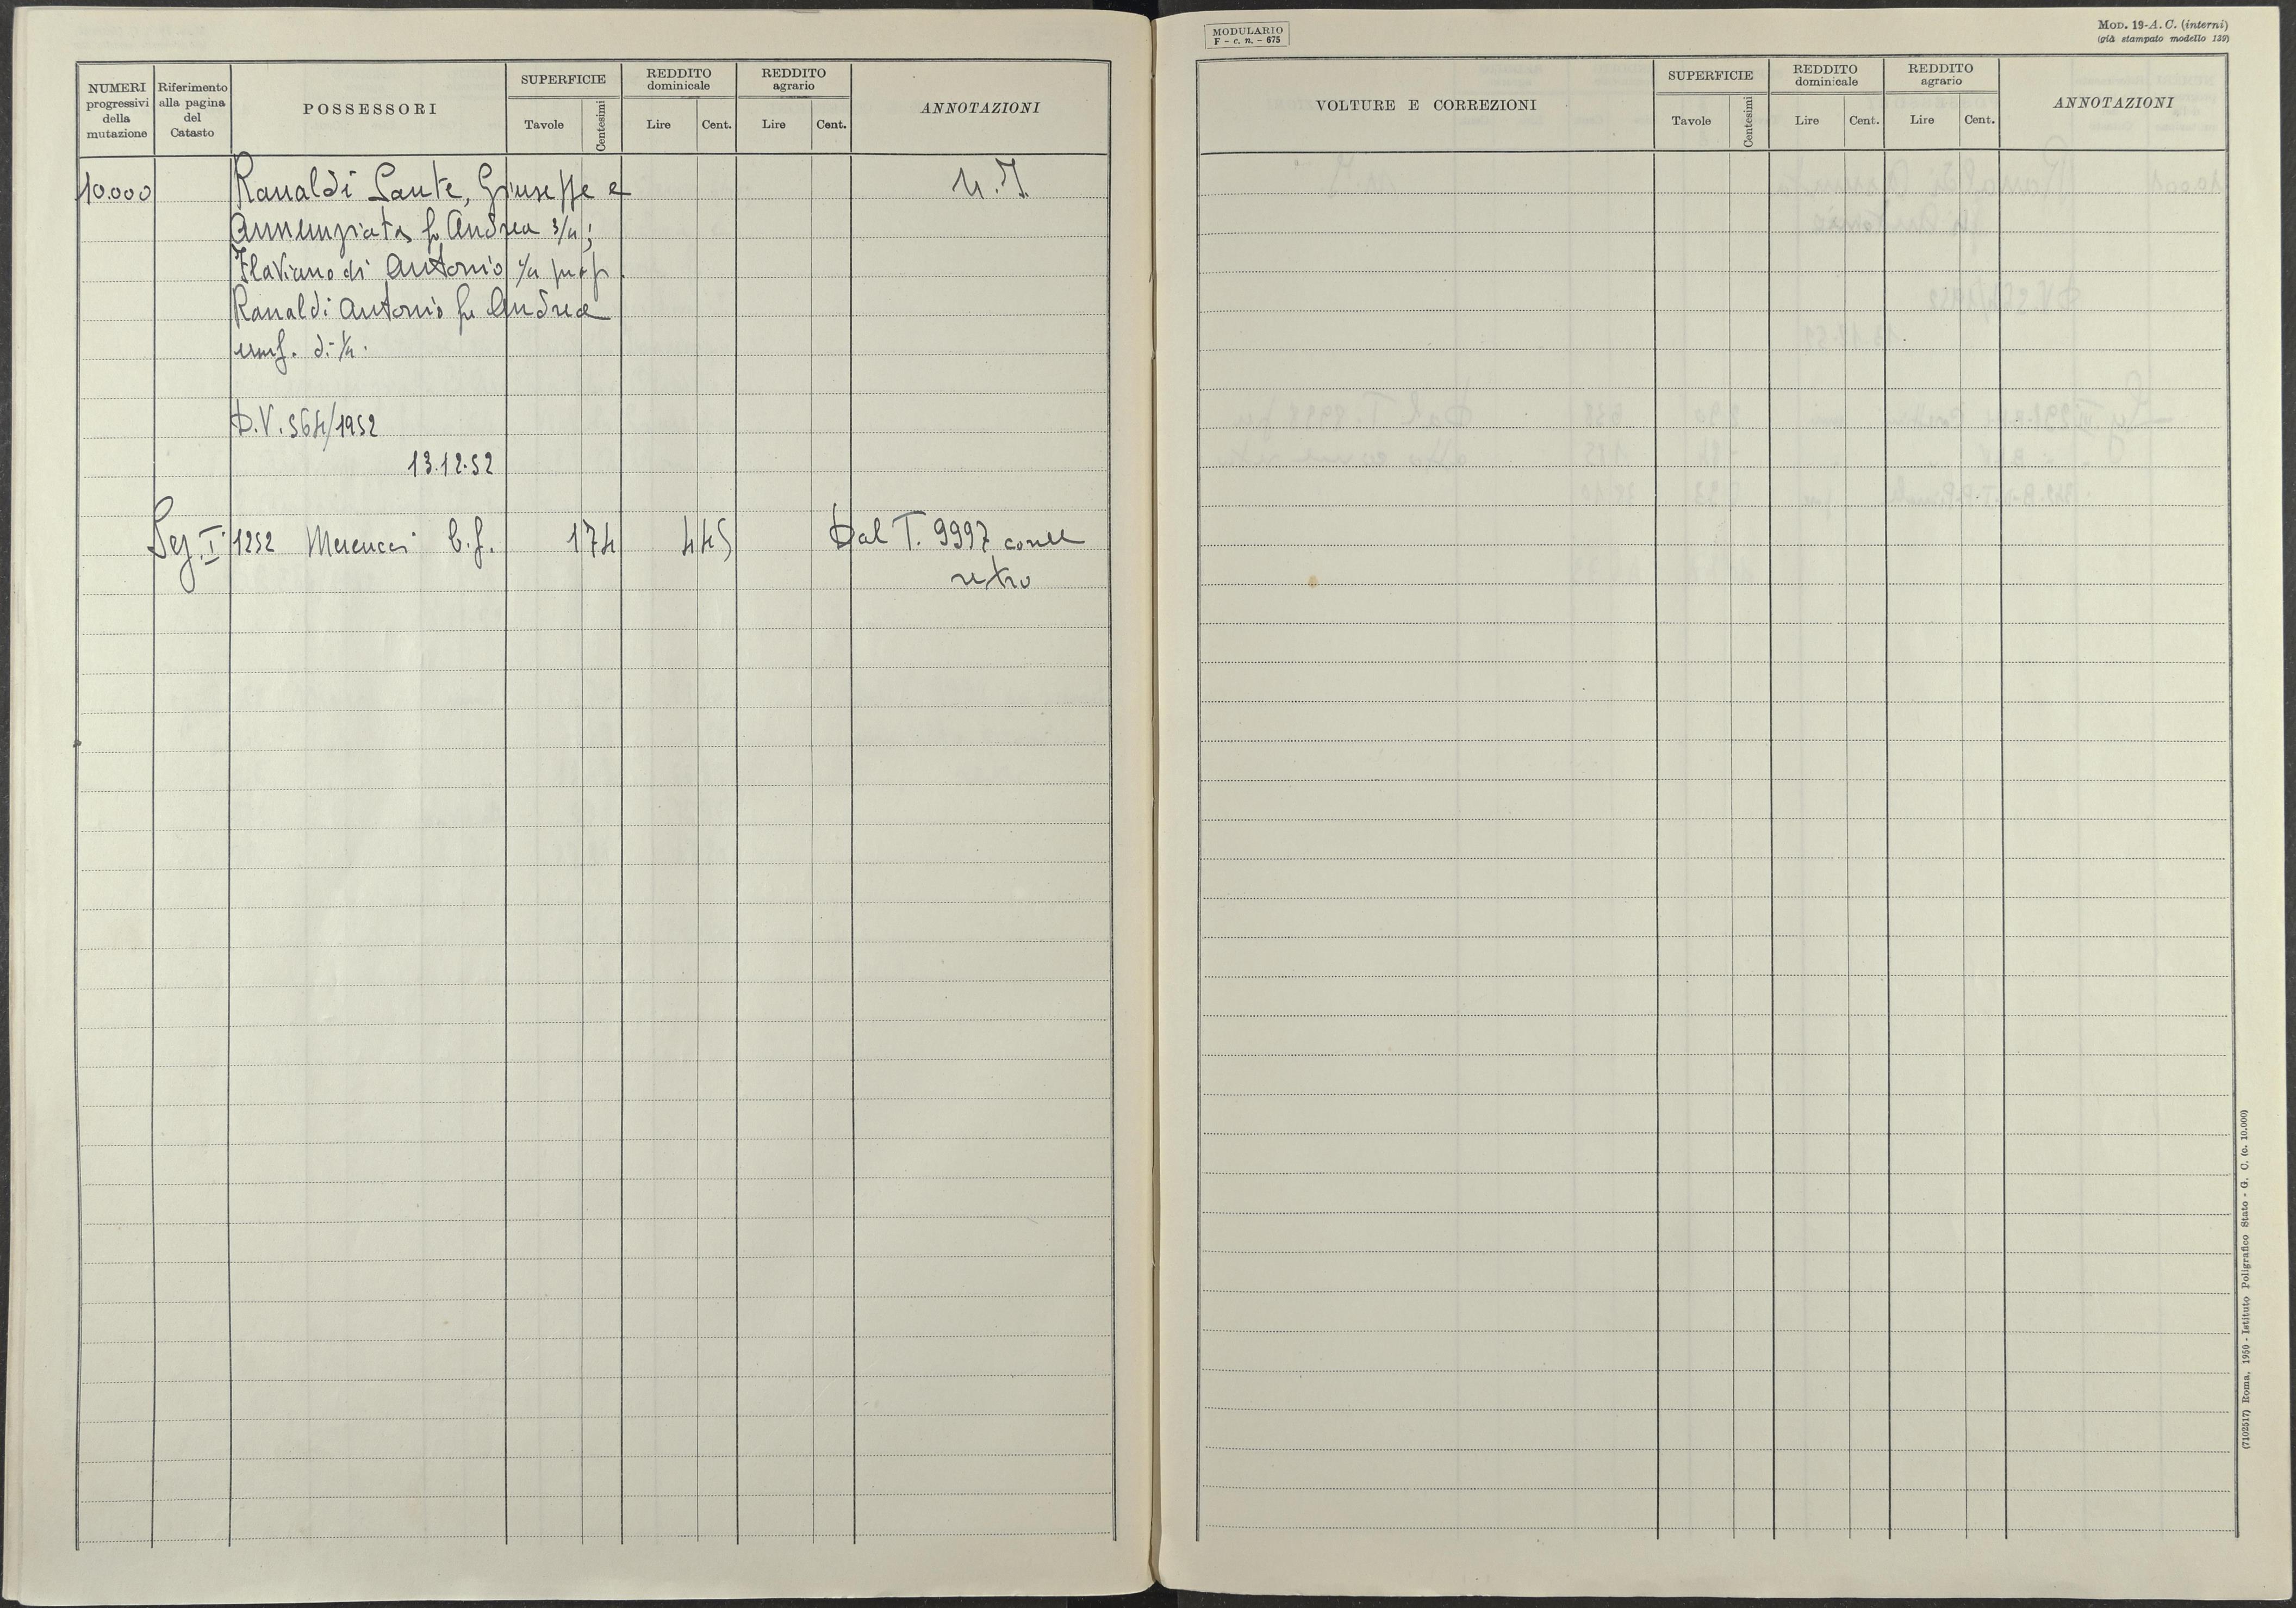 MODULARIO
F - c. n. - 675
MOD. 19-A. C. (interni)
(già stampato modello 139)
NUMERI progressivi della mutazione
Riferimento alla pagina del Catasto
POSSESSORI
SUPERFICIE
Tavole
Centesimi
REDDITO dominicale
Lire
Cent.
REDDITO agrario
Lire
Cent.
ANNOTAZIONI
10.000 Ranaldi Sante, Giuseppe e
Annunziata fu Andrea 3/4;
Flaviano di Antonio 1/4 prop.
Ranaldi Antonio fu Andrea
usuf. di 1/4.
D.V. 564/1952
13.12.52
Sez. I 1252 b.f. 174 445 Dal T. 9997 come
retro
VOLTURE E CORREZIONI
SUPERFICIE
Tavole
Centesimi
REDDITO dominicale
Lire
Cent.
REDDITO agrario
Lire
Cent.
ANNOTAZIONI
(7102517) Roma, 1950 - Istituto Poligrafico Stato - G. C. (c. 10.000)